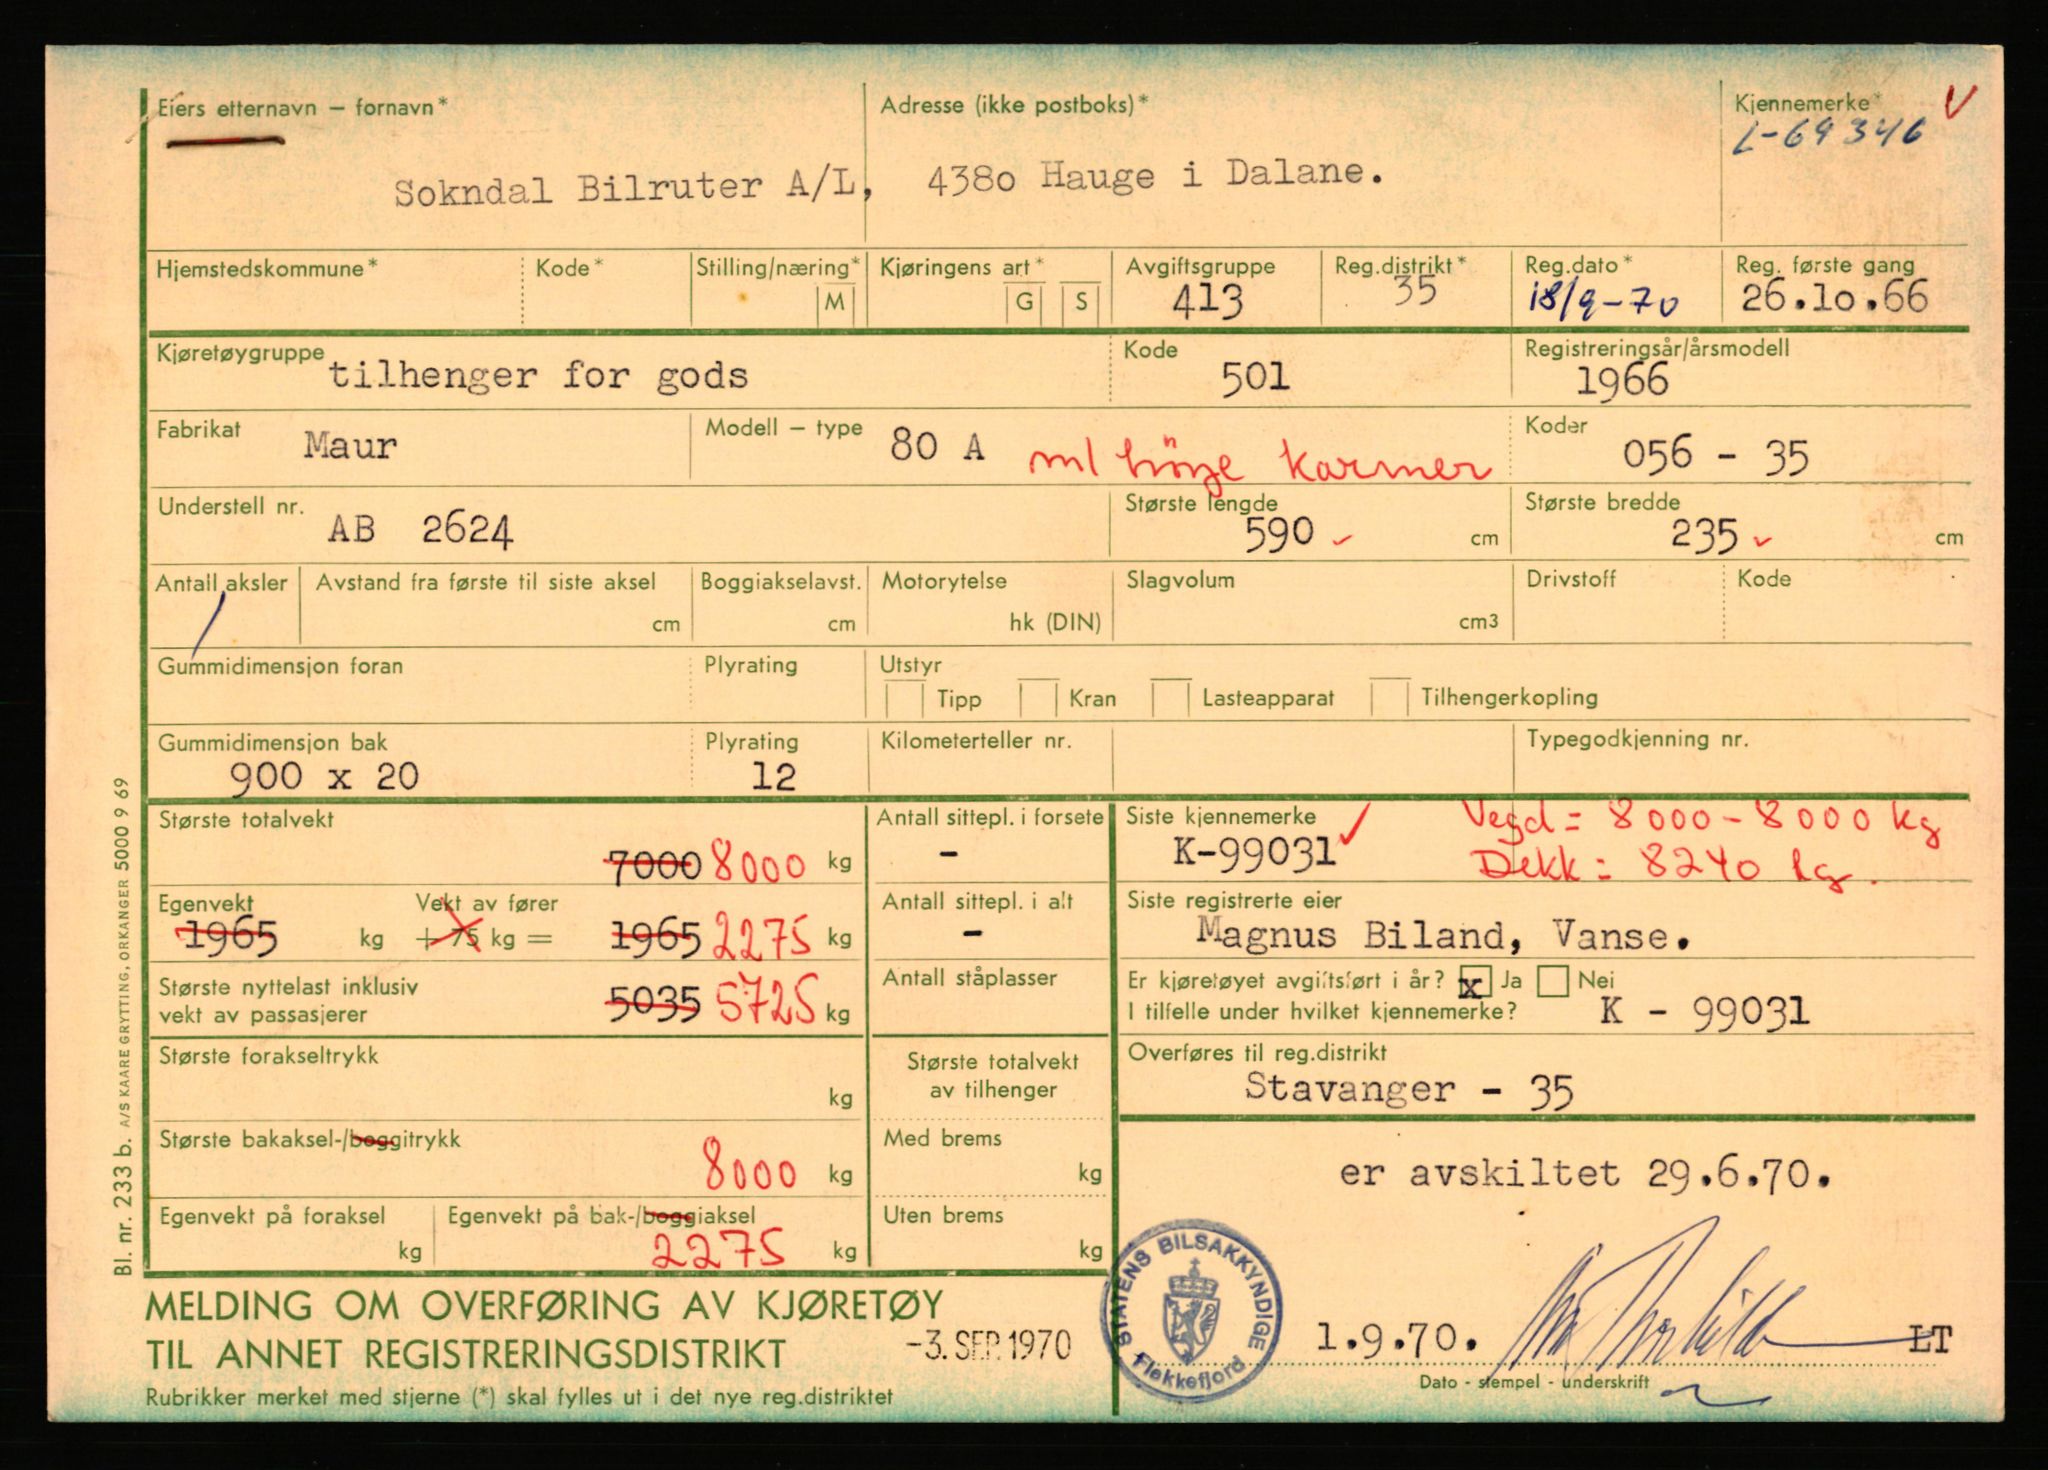 Eiers etternavn – fornavn*
Adresse (ikke postboks)*
Kjennemerke*
V
L-69346
Sokndal Bilruter A/L, 4380 Hauge i Dalane.
Hjemstedskommune*
Kode*
Stilling/næring*
M
Kjøringens art*
G S
Avgiftsgruppe
413
Reg.distrikt*
35
Reg.dato*
18/9-70
Reg. første gang
26.10.66
Kjøretøygruppe
tilhenger for gods
Kode
501
Registreringsår/årsmodell
1966
Fabrikat
Maur
Modell – type
80 A
m/ höye karmer
Koder
056 - 35
Understell nr.
AB 2624
Største lengde
590 cm
Største bredde
235 cm
Antall aksler
/
Avstand fra første til siste aksel
cm
Boggiakselavst.
cm
Motorytelse
hk (DIN)
Slagvolum
cm3
Drivstoff
Kode
Gummidimensjon foran
Plyrating
Utstyr
Tipp Kran Lasteapparat Tilhengerkopling
Gummidimensjon bak
900 x 20
Plyrating
12
Kilometerteller nr.
Typegodkjenning nr.
Største totalvekt
7000 8000 kg
Egenvekt
1965 kg
Vekt av fører
+ 75 kg =
1965 2275 kg
Største nyttelast inklusiv
vekt av passasjerer
5035 5725 kg
Største forakseltrykk
kg
Største bakaksel-/boggitrykk
8000 kg
Egenvekt på foraksel
kg
Egenvekt på bak-/boggiaksel
2275 kg
Antall sittepl. i forsete
-
Antall sittepl. i alt
-
Antall ståplasser
Største totalvekt
av tilhenger
Med brems
kg
Uten brems
kg
Siste kjennemerke
K-99031
Vegd = 8000 - 8000 kg
Dekk = 8240 kg.
Siste registrerte eier
Magnus Biland, Vanse.
Er kjøretøyet avgiftsført i år? x Ja Nei
I tilfelle under hvilket kjennemerke? K - 99031
Overføres til reg.distrikt
Stavanger - 35
er avskiltet 29.6.70.
STATENS BILSAKKYNDIGE
Flekkefjord
1.9.70.
LT
Dato - stempel - underskrift
MELDING OM OVERFØRING AV KJØRETØY
TIL ANNET REGISTRERINGSDISTRIKT
-3. SEP. 1970
Rubrikker merket med stjerne (*) skal fylles ut i det nye reg.distriktet
Bl. nr. 233 b. A/S KAARE GRYTTING, ORKANGER 5000 9 69